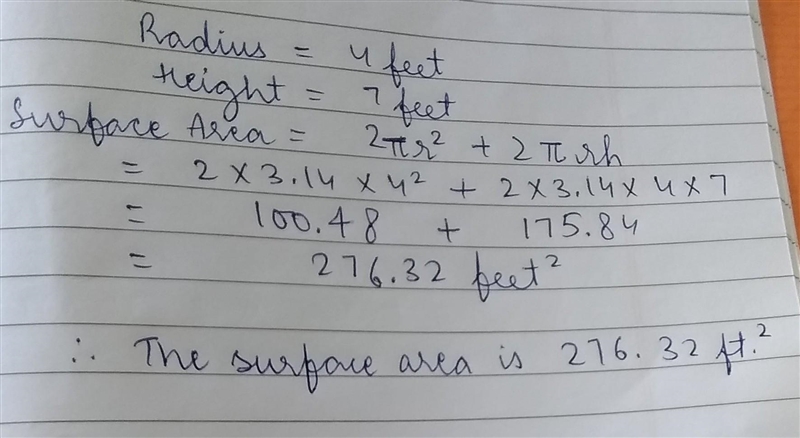 Radius = 4 feet
Height = 7 feet
Surface Area = 2πr² + 2πrh
= 2 × 3.14 × 4² + 2 × 3.14 × 4 × 7
= 100.48 + 175.84
= 276.32 feet²
∴ The surface area is 276.32 ft.²